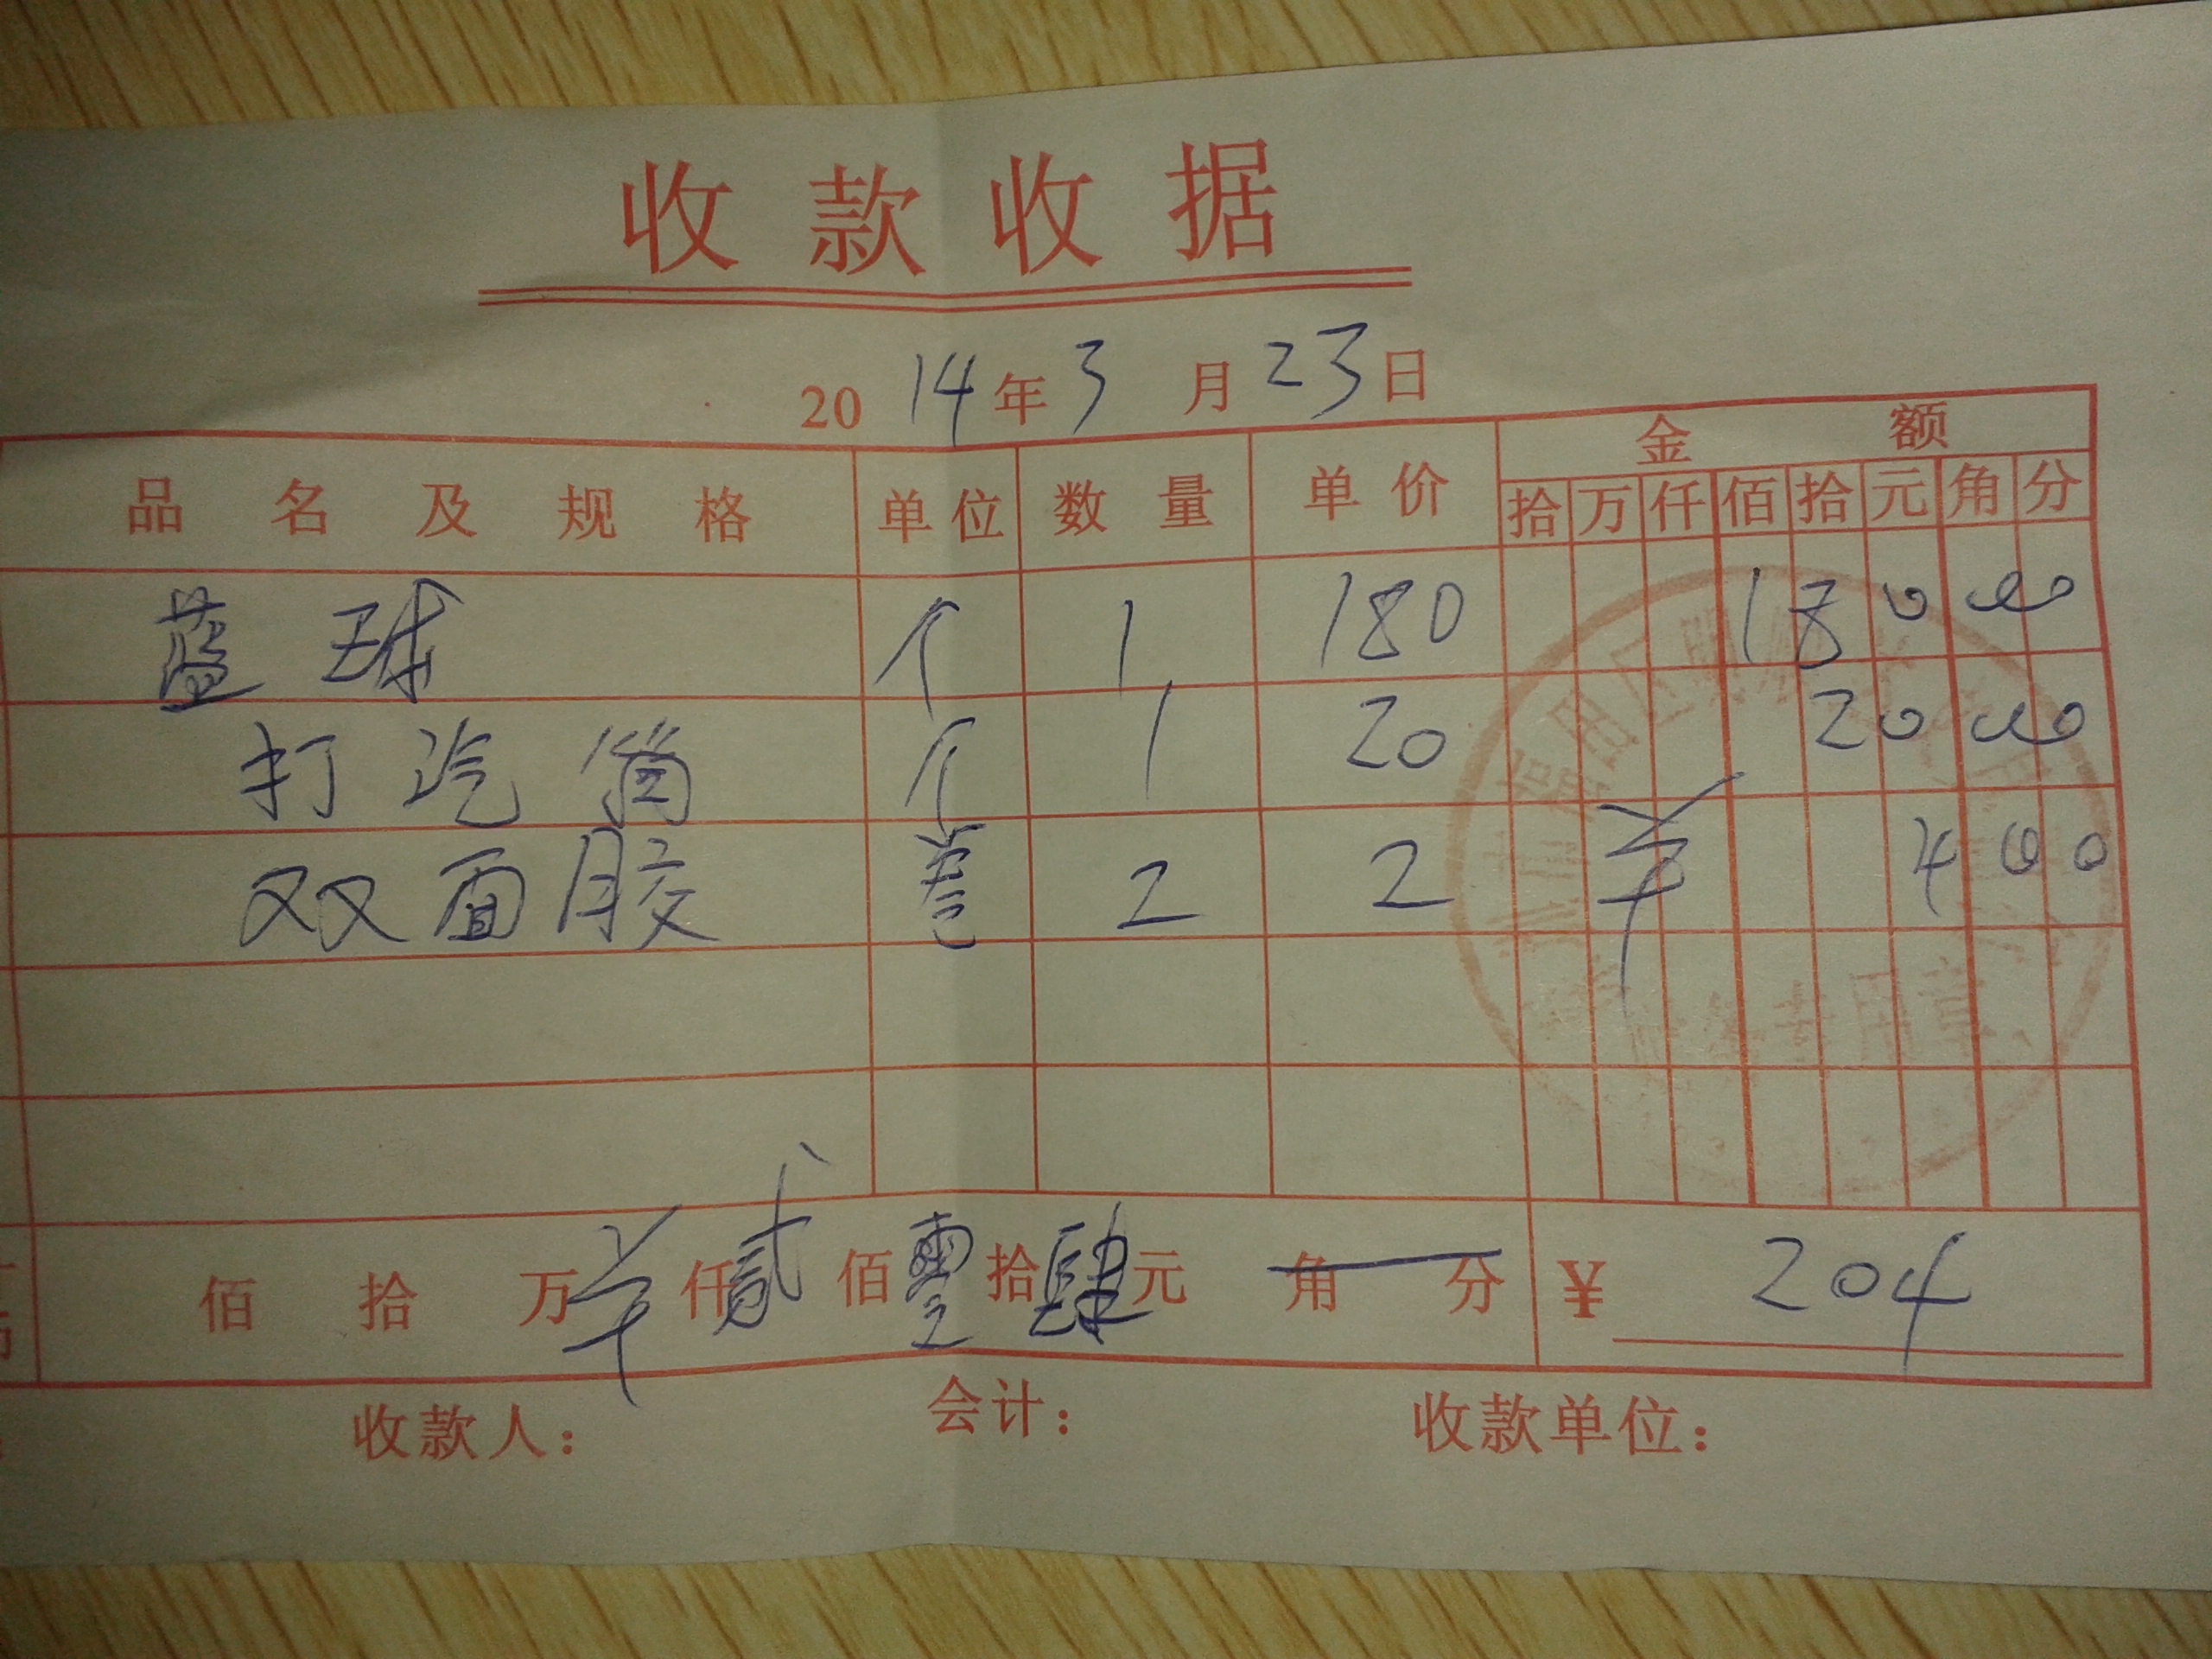 收款收据
2014年3月23日
品名及规格 单位 数量 单价 金额
拾 万 仟 佰 拾 元 角 分
蓝球 个 1 180 1 8 0 0 0
打汽筒 个 1 20 2 0 0 0
双面胶 卷 2 2 ¥ 4 0 0
佰 拾 万 ¥ 仟 贰 佰 零 拾 肆 元 角 分 ¥ 204
收款人： 会计： 收款单位：